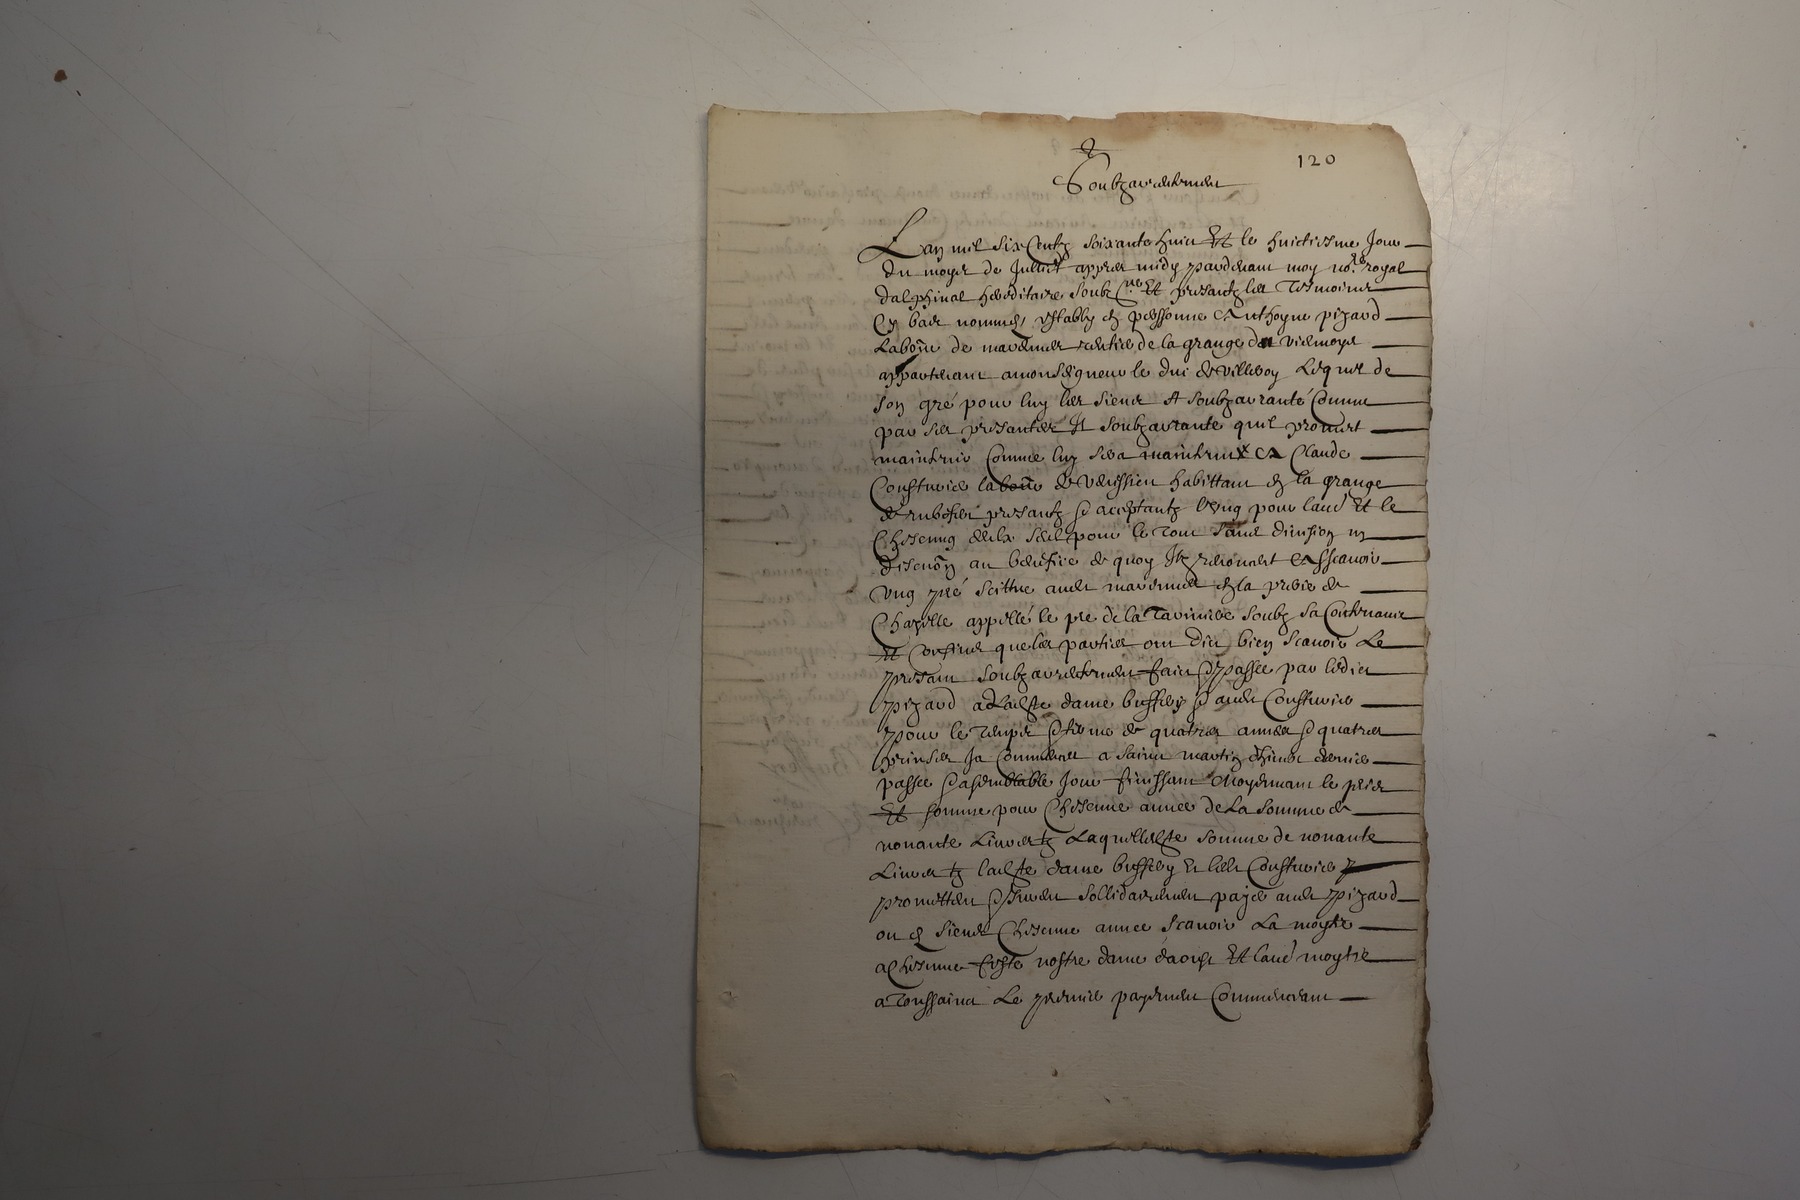 120
Soubzarrentement
Lan mil six Centz soixante huict Et le huictiesme Jour
du moys de Juillet appres midy pardevant moy no.re royal
dalphinal hereditaire soubz.ne Et presantz les Tesmoins
En bas nommes estably en personne Anthoyne pizard
Labour de marennes rentier de la grange de
appartenant a monseigneur le duc de villeroy Lequel de
son gré pour luy les siens A soubzarranté Comme
par ses presantes Et soubzarrante quil promet
maintenir Comme luy sera maintenu A Claude
labour de venissieu habittant en la grange
de presantz & acceptantz lung pour laud Et le
Chescung deulx seul pour le Tout sans division ny
discuon au benefice de quoy Ilz renoncent Ascavoir
Ung pré scittue aud marennes en la prerie de
Chazelle appellé le pre de la soubz sa Contenance
Et Confins que les parties ont dict bien scavoir Le
presant soubzarrentement faict & passee par ledict
pizard a Ladte dame bussery & aud
pour le Temps & terme de quatres annees & quatres
prinses Ja Commencee a sainct martin dhiver dernier
passee & a semblable Jour finissant Moyennant le pris
Et somme pour Chescune annee de La somme de
nonante Livres tz Laquelle dte somme de nonante
Livres tz ladte dame bussery Et led
promettent & seront sollidairement payer aud pizard
ou es siens Chescune annee scavoir La moytie
a Chescune feste nostre dame daoust Et laud moytie
a Toussainct Le premier payement Commencant